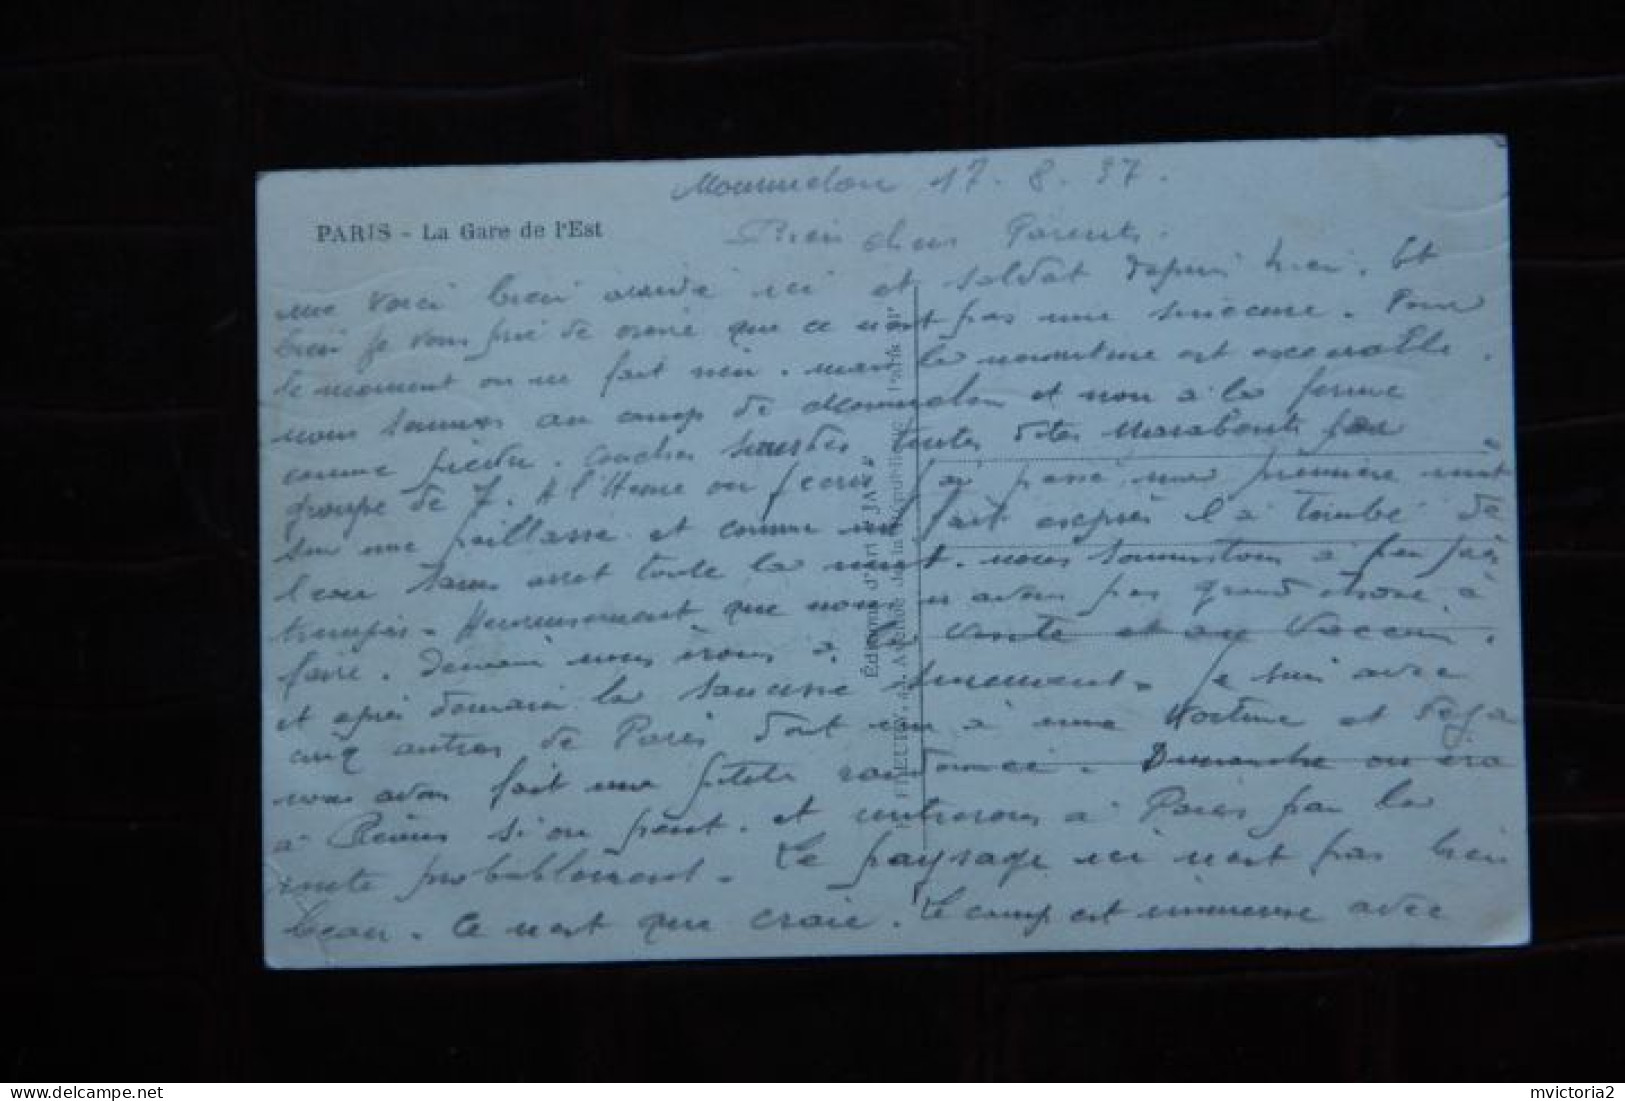 Mourmelon 17. 8. 37.
PARIS - La Gare de l'Est
Bien chers Parents.
me voici bien arrivé ici et soldat depuis hier. Et
bien je vous prie de croire que ce n'est pas une sinécure. Pour
le moment on ne fait rien. mais la nourriture est execrable.
nous sommes au camp de Mourmelon et non à la ferme
comme prévu. Couchés sous des tentes dites Marabouts par
groupe de 7. A l'Heure ou j'ecris j'ai passé ma première nuit
sur une paillasse et comme un fait exprès il a tombé de
l'eau sans arret toute la nuit. nous sommes tous à peu près
trempés. Heureusement que nous n'avons pas grand chose à
faire. Demain nous irons à la visite et au Vaccin.
et après demain la serieusement. Je suis avec
cinq autres de Paris dont un à une voiture et deja
nous avons fait une petite randonnée. Dimanche on ira
à Reims si on peut. et rentrerons à Paris par la
suite probablement. Le paysage ici n'est pas bien
beau. Ce n'est que craie. Le camp est immense avec
Editions d'Art "JA"
Avenue de la République Paris XIe